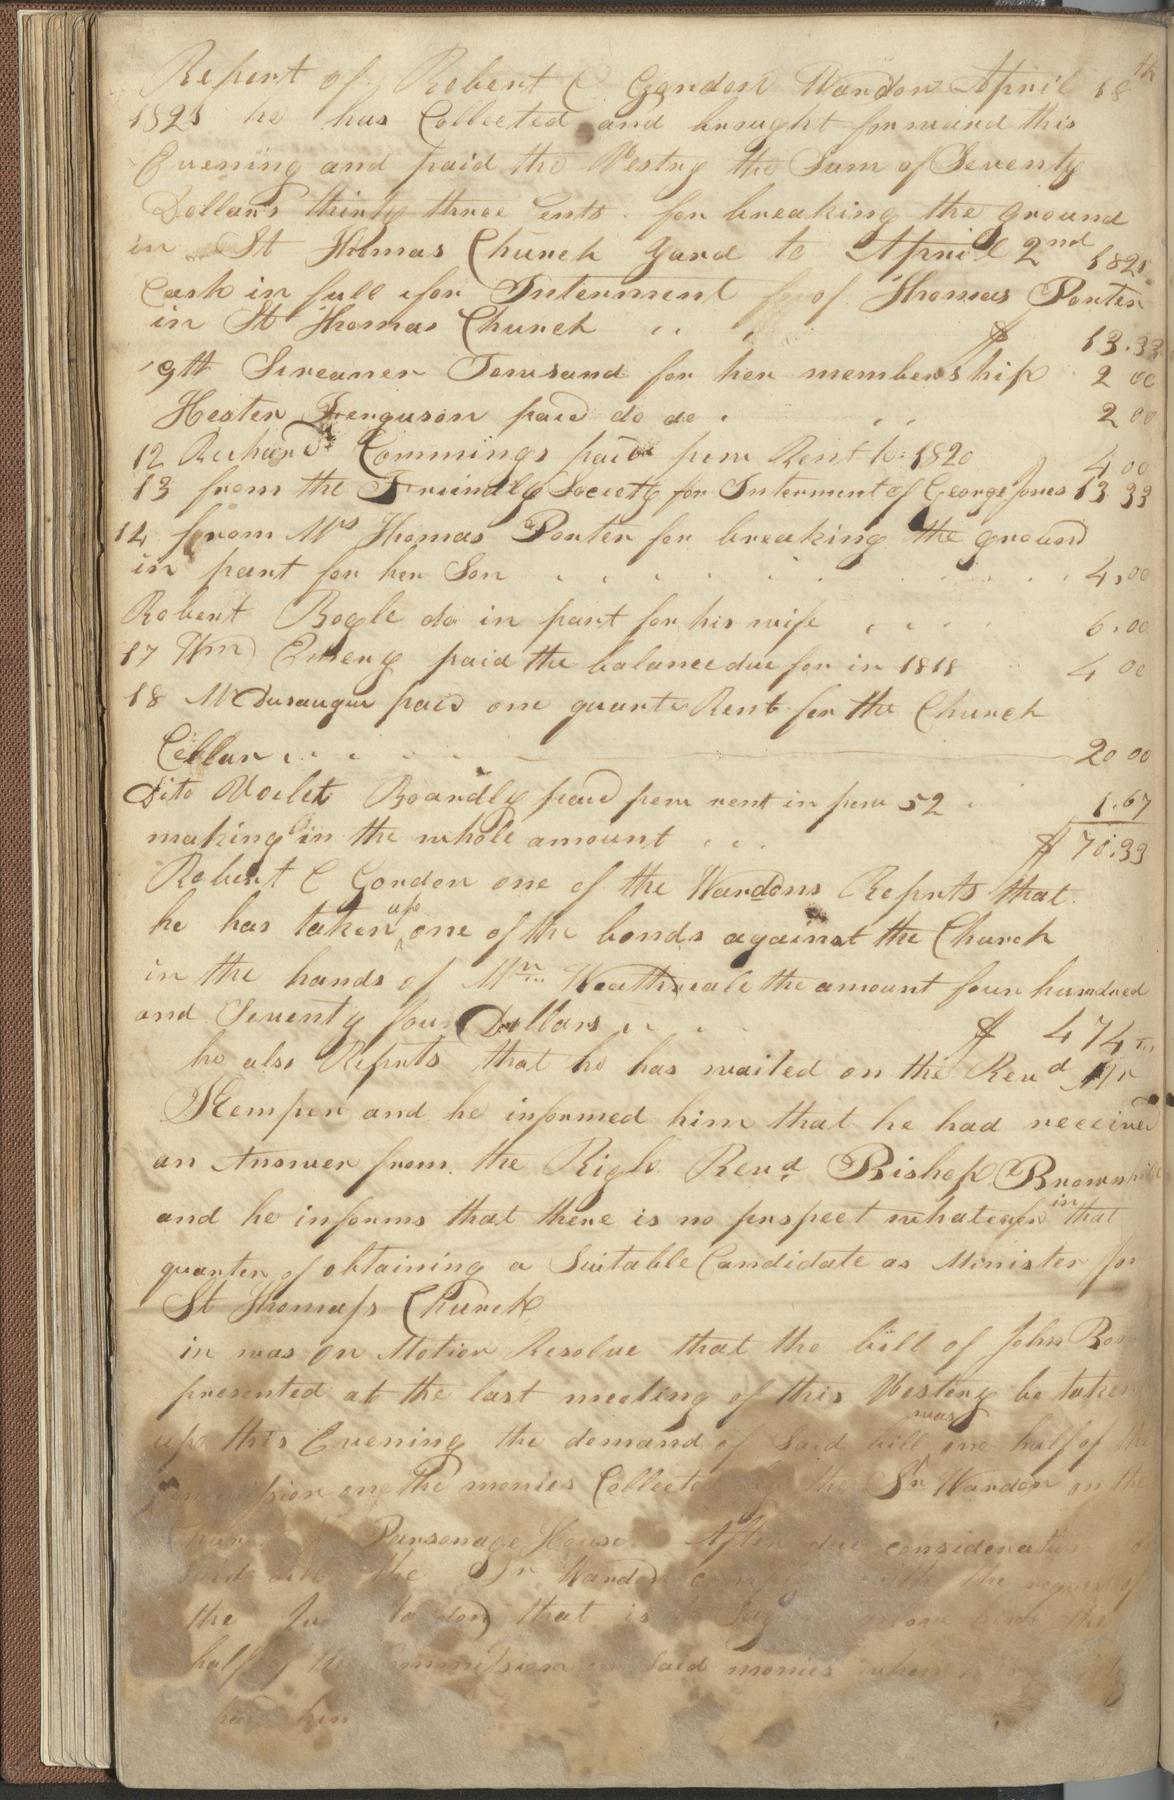 Report of Robert C Gordon Wardon April 18th
1821 he has Collected and brought forward this
Evening and paid the Vestry the Sum of Seventy
Dollars thirty three Cents for breaking the ground
in St Thomas Church yard to April 2nd 1821
Cash in full for Interment of Thomas Porter
in St Thomas Church $ 13.33
9th Sireaner Townsand for her membership 2 00
Hester Ferguson paid do do 2 00
12 Richard Commings paid pew Rent to 1820 4 00
13 from the Friendly Society for Interment of George Jones 13 33
14 from Mrs Thomas Porter for breaking the ground
in part for her Son 4,00
Robert Bogle do in part for his wife 6.00
17 Wm Emery paid the balance due for in 1818 4 00
18 paid one quarter Rent for the Church
Cellar 20 00
Dito Voilet Boardly paid pew rent in pew 52 1.67
making in the whole amount $ 70.33
Robert C Gordon one of the Wardons Reports that
he has taken up one of the bonds against the Church
in the hands of the amount four hundred
and Seventy four Dollars $ 474
he also Reports that he has waited on the Revd Mr
Kemper and he informed him that he had received
an Answer from the Righ Revd Bishop
and he informs that there is no prspect whatever in that
quarter of obtaining a Suitable Candidate as Minister for
St Thomass Church
in was on Motion Resolve that the bill of John
presented at the last meeting of this Vestery be taken
up this Evening the demand of Said bill was one half of the
on the monies the Sr Wardon on the
Parsonage House After due consideration
the Sr Wardon the
the that is the
half of the Commission Said monies when